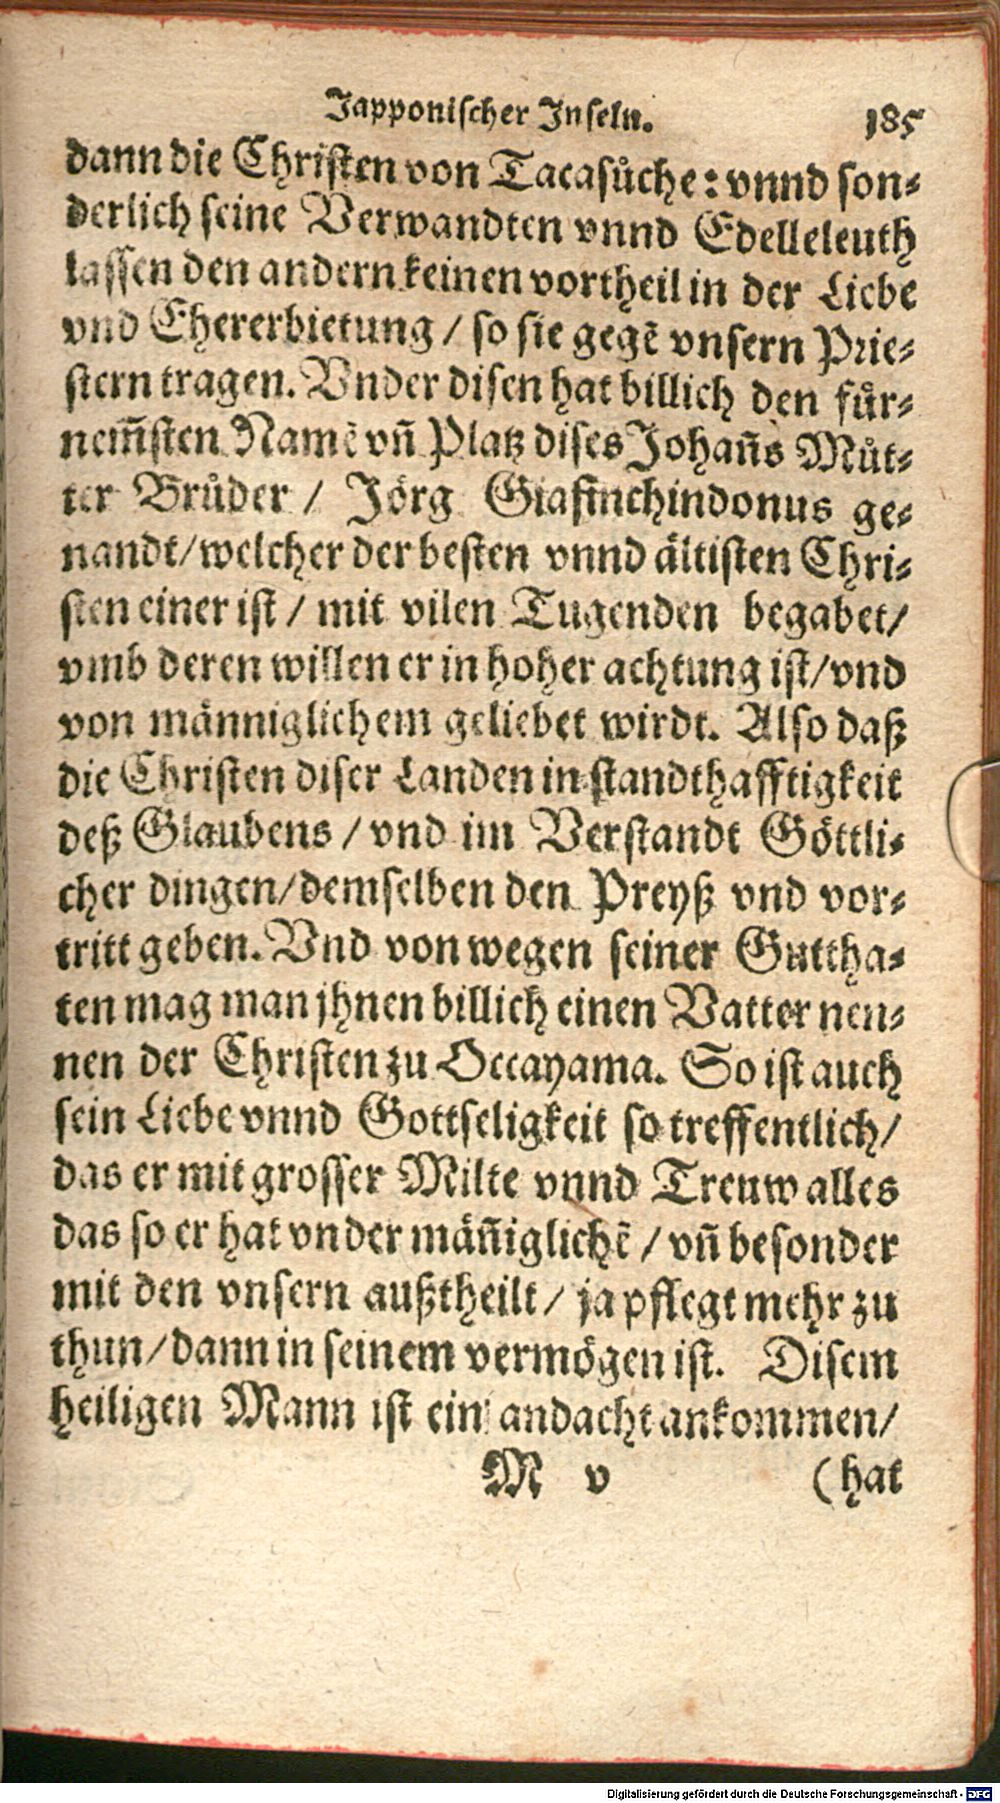 Japponischer Inseln. 185
dann die Christen von Tacasůche: vnnd son⸗
derlich seine Verwandten vnnd Edelleleuth
lassen den andern keinen vortheil in der Liebe
vnd Ehererbietung / so sie gegē vnsern Prie⸗
stern tragen. Vnder disen hat billich den fůr⸗
nem̄sten Namē vn̄ Platz dises Johan̄s Můt⸗
ter Brůder / Jörg Giafinchindonus ge⸗
nandt/ welcher der besten vnnd ältisten Chri⸗
sten einer ist / mit vilen Tugenden begabet/
vmb deren willen er in hoher achtung ist/ vnd
von männiglichem geliebet wirdt. Also daß
die Christen diser Landen in standthafftigkeit
deß Glaubens / vnd im Verstandt Göttli⸗
cher dingen/ demselben den Preyß vnd vor⸗
tritt geben. Vnd von wegen seiner Guttha⸗
ten mag man jhnen billich einen Vatter nen⸗
nen der Christen zu Occayama. So ist auch
sein Liebe vnnd Gottseligkeit so treffentlich/
das er mit grosser Milte vnnd Treuw alles
das so er hat vnder män̄iglichē / vn̄ besonder
mit den vnsern außtheilt / ja pflegt mehr zu
thun/ dann in seinem vermögen ist. Disem
heiligen Mann ist ein andacht ankommen/
M v (hat
Digitalisierung gefördert durch die Deutsche Forschungsgemeinschaft - DFG